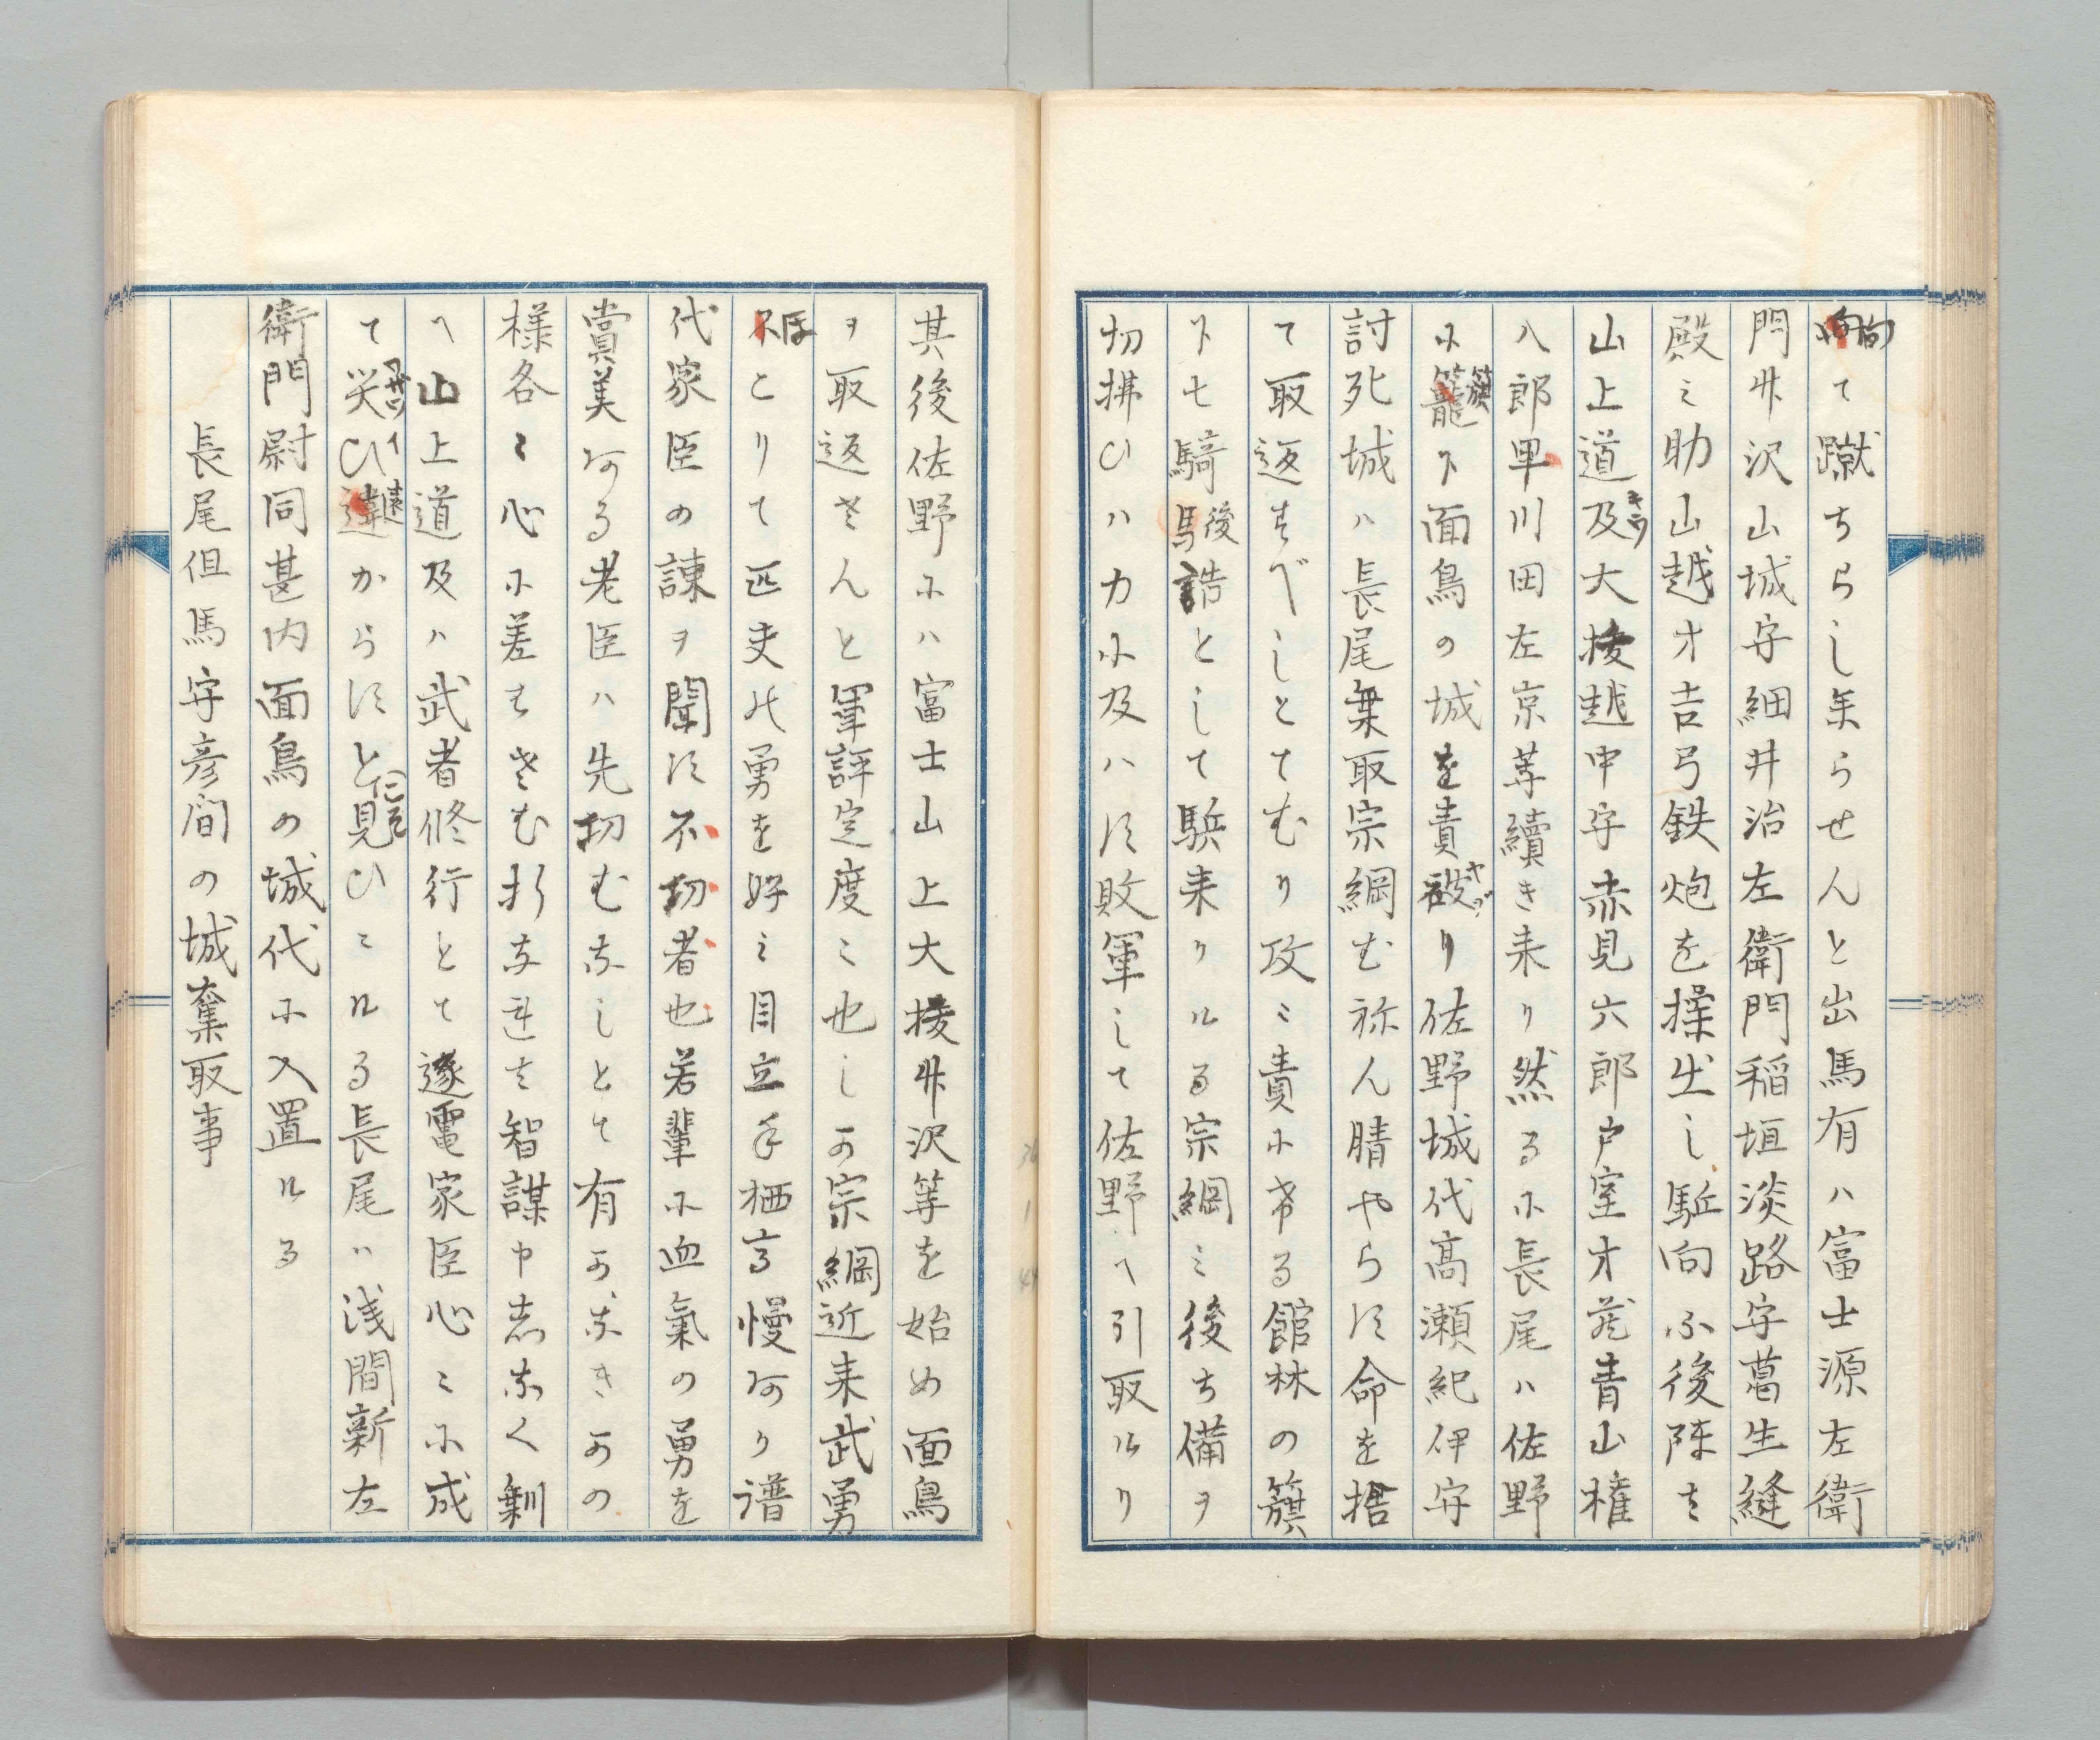 向て蹴ちらし来らせんと出馬有ハ富士源左衛
門竹沢山城守細井治左衛門稲垣淡路守葛生縫
殿之助山越才吉弓鉄炮を操出し駈向ふ後陣は
山上道及大拔越中守赤見六郎戸室才蔵青山権
八郎早川田左京等續き来り然るに長尾ハ佐野
に籏下面鳥の城を責被り佐野城代高瀬紀伊守
討死城ハ長尾棄取宗綱む祢ん晴やらす命を捨
て取返すべしとてむり攻に責に寄る館林の籏
下七騎後詰として駈来りける宗綱に後ち備ヲ
切拂ひハ力に及ハす敗軍して佐野へ引取けり
其後佐野にハ富士山上大拔竹沢等を始め面鳥
ヲ取返さんと軍評定度々也しか宗綱近来武勇
にほこりて匹夫の勇を好ミ目立手柄高慢あり譜
代家臣の諫ヲ聞す不切者也若輩に血氣の勇を
賞美ある老臣ハ先切むなしとて有かなきかの
様各々心に差はさむ折なれは智謀中志なく剰
へ山上道及ハ武者修行とて逐電家臣心々に成
て災ひ遠からすと見ひこける長尾ハ浅間新左
衛門尉同甚内面鳥の城代に入置ける
長尾但馬守彦間の城棄取事